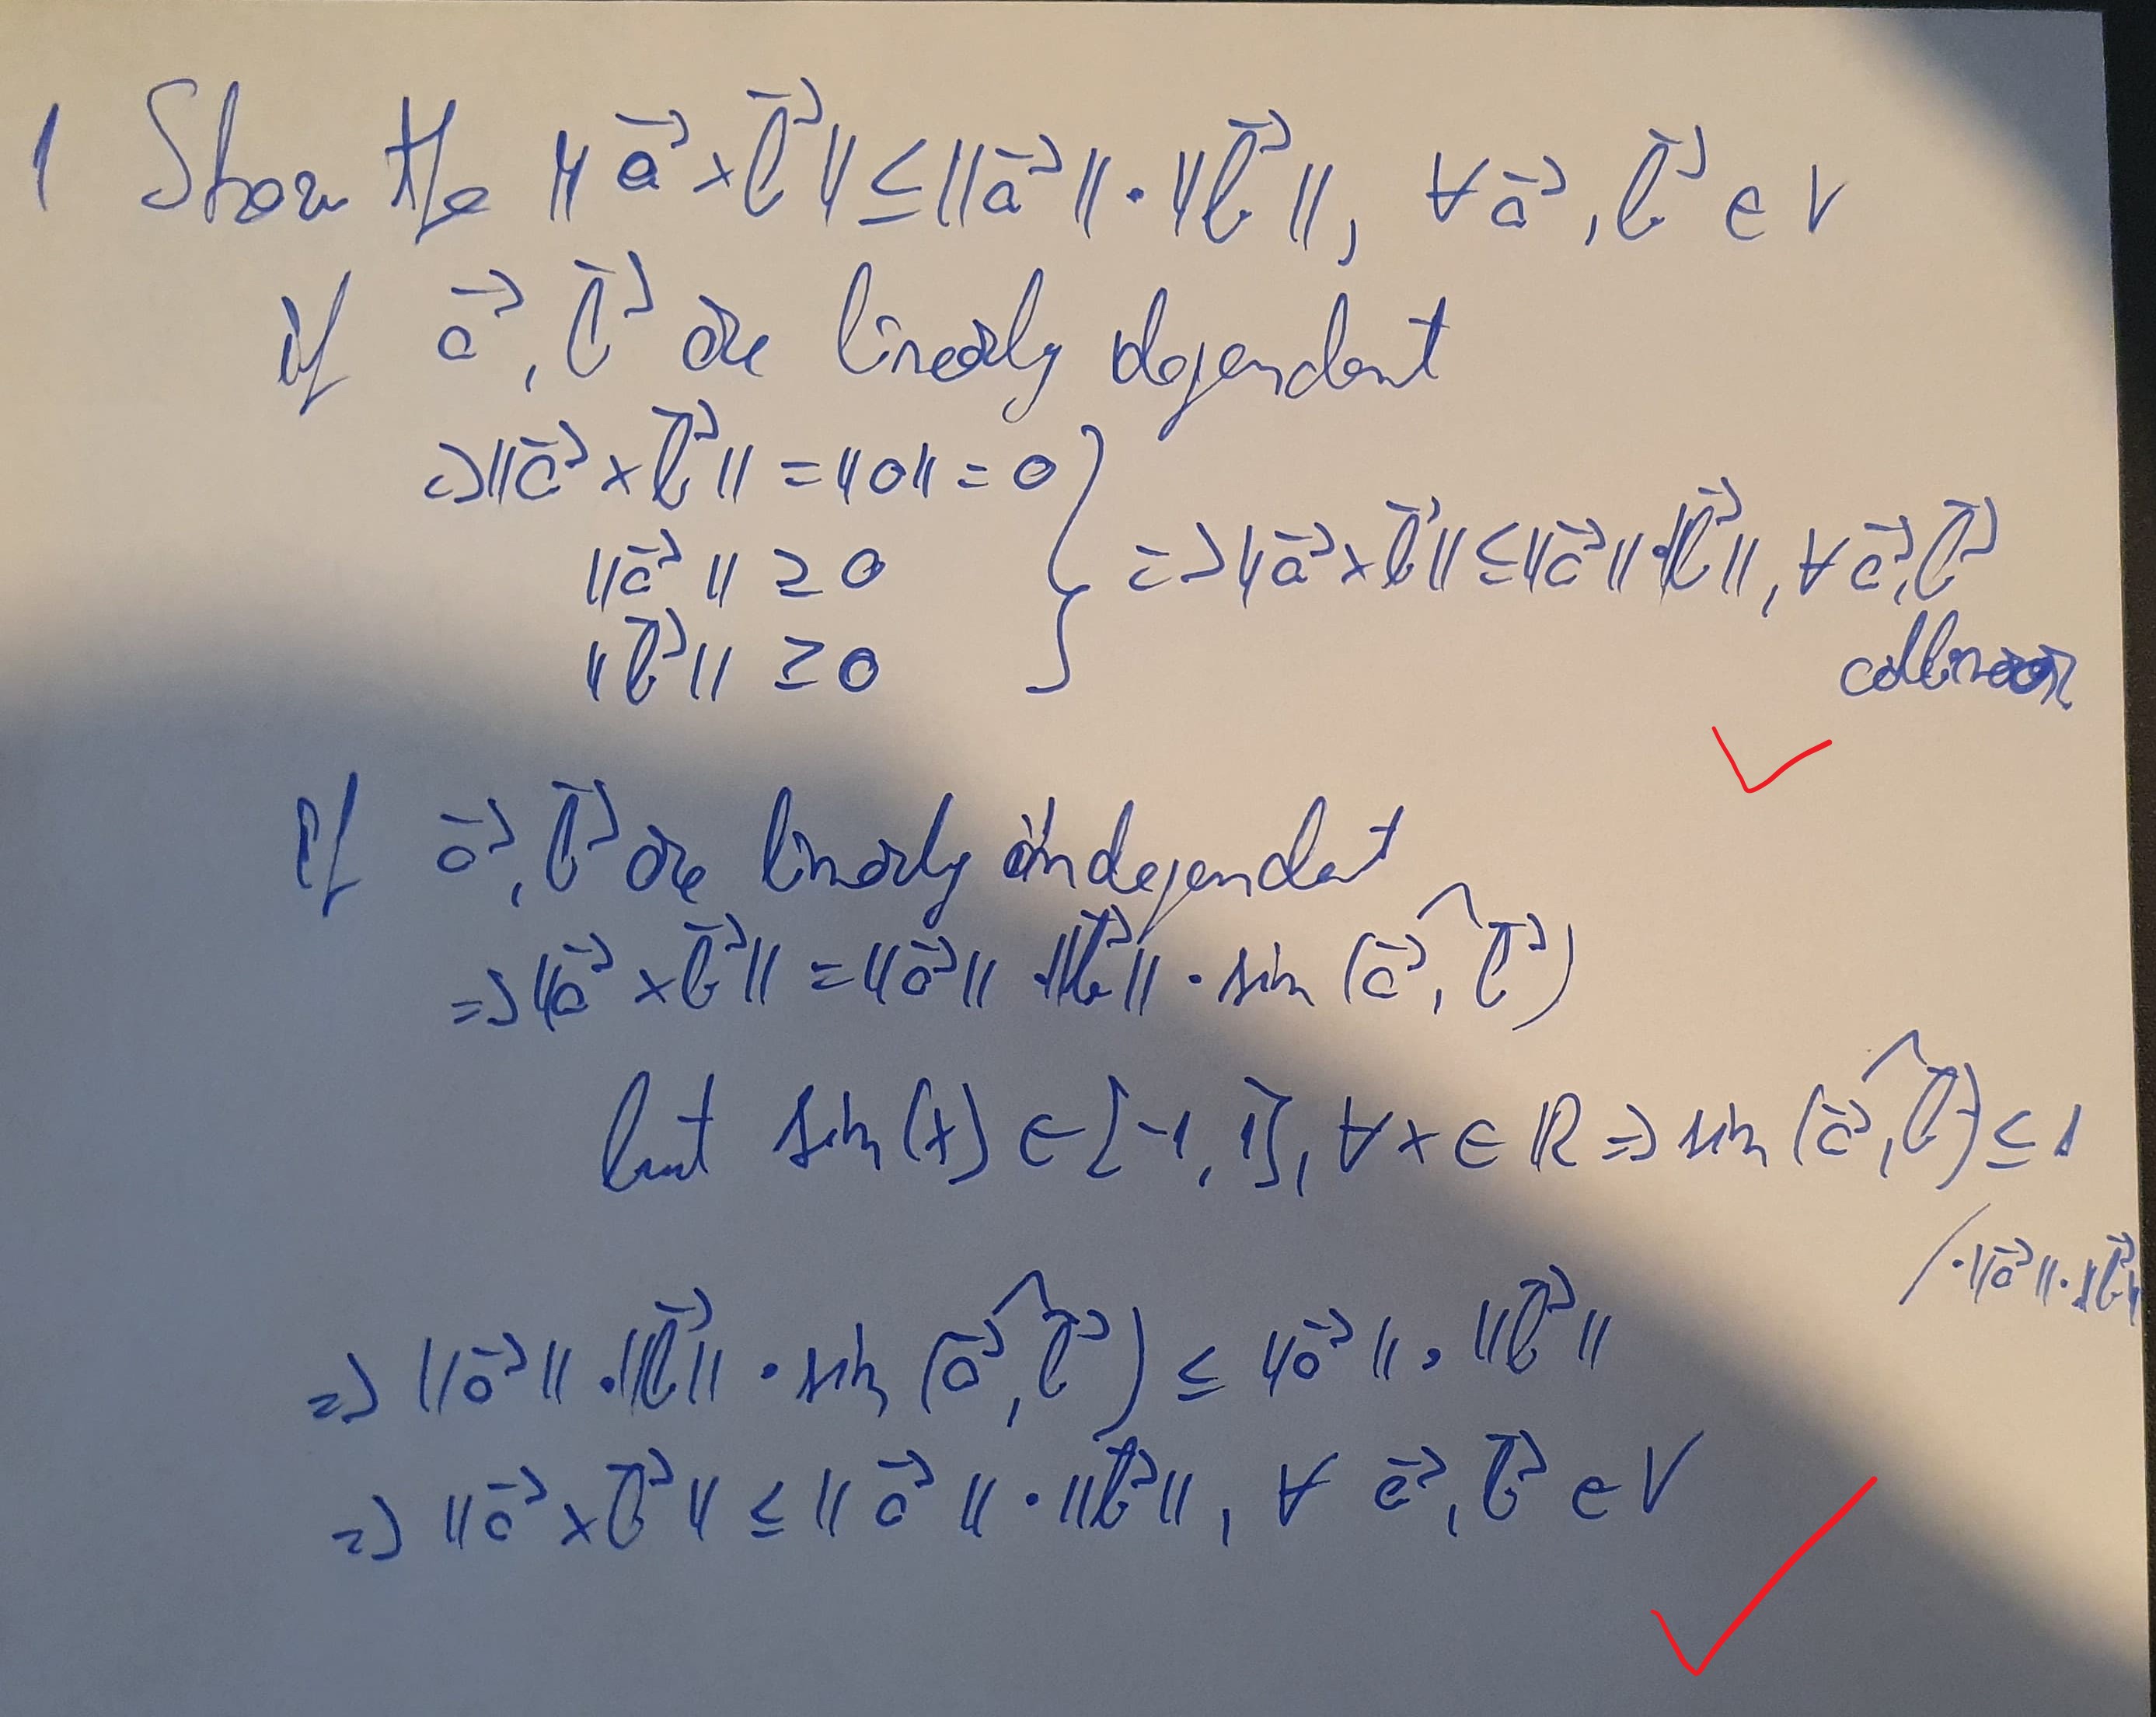 1 Show the ‖a⃗ × b⃗‖ ≤ ‖a⃗‖ · ‖b⃗‖, ∀ a⃗, b⃗ ∈ V
if a⃗, b⃗ are linearly dependent
⇒ ‖a⃗ × b⃗‖ = ‖0‖ = 0
‖a⃗‖ ≥ 0
‖b⃗‖ ≥ 0
} ⇒ ‖a⃗ × b⃗‖ ≤ ‖a⃗‖ · ‖b⃗‖, ∀ a⃗, b⃗
collinear
If a⃗, b⃗ are linearly independent
⇒ ‖a⃗ × b⃗‖ = ‖a⃗‖ · ‖b⃗‖ · sin (a⃗, b⃗)
but sin(x) ∈ [-1, 1], ∀ x ∈ ℝ ⇒ sin (a⃗, b⃗) ≤ 1
/ · ‖a⃗‖ · ‖b⃗‖
⇒ ‖a⃗‖ · ‖b⃗‖ · sin (a⃗, b⃗) ≤ ‖a⃗‖ · ‖b⃗‖
⇒ ‖a⃗ × b⃗‖ ≤ ‖a⃗‖ · ‖b⃗‖, ∀ a⃗, b⃗ ∈ V